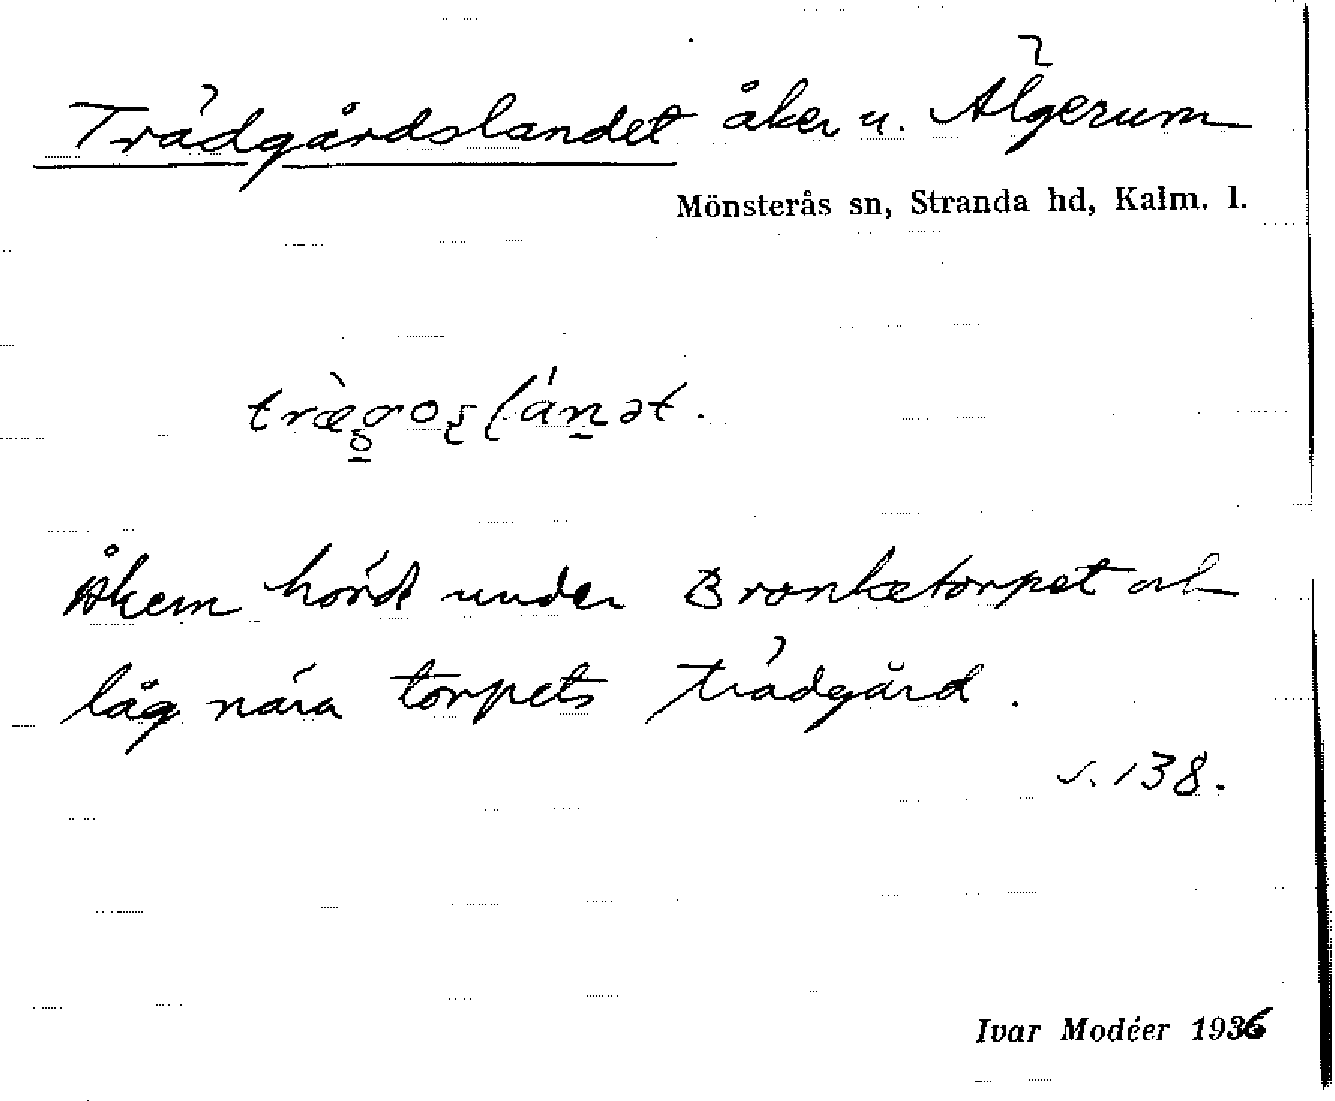 Trädgårdslandet åker u. Älgerum
Mönsterås sn, Stranda hd, Kalm. l.
Åkern hörde under Bronketorpet och
låg nära torpets trädgård.
s. 138.
Ivar Modéer 1936